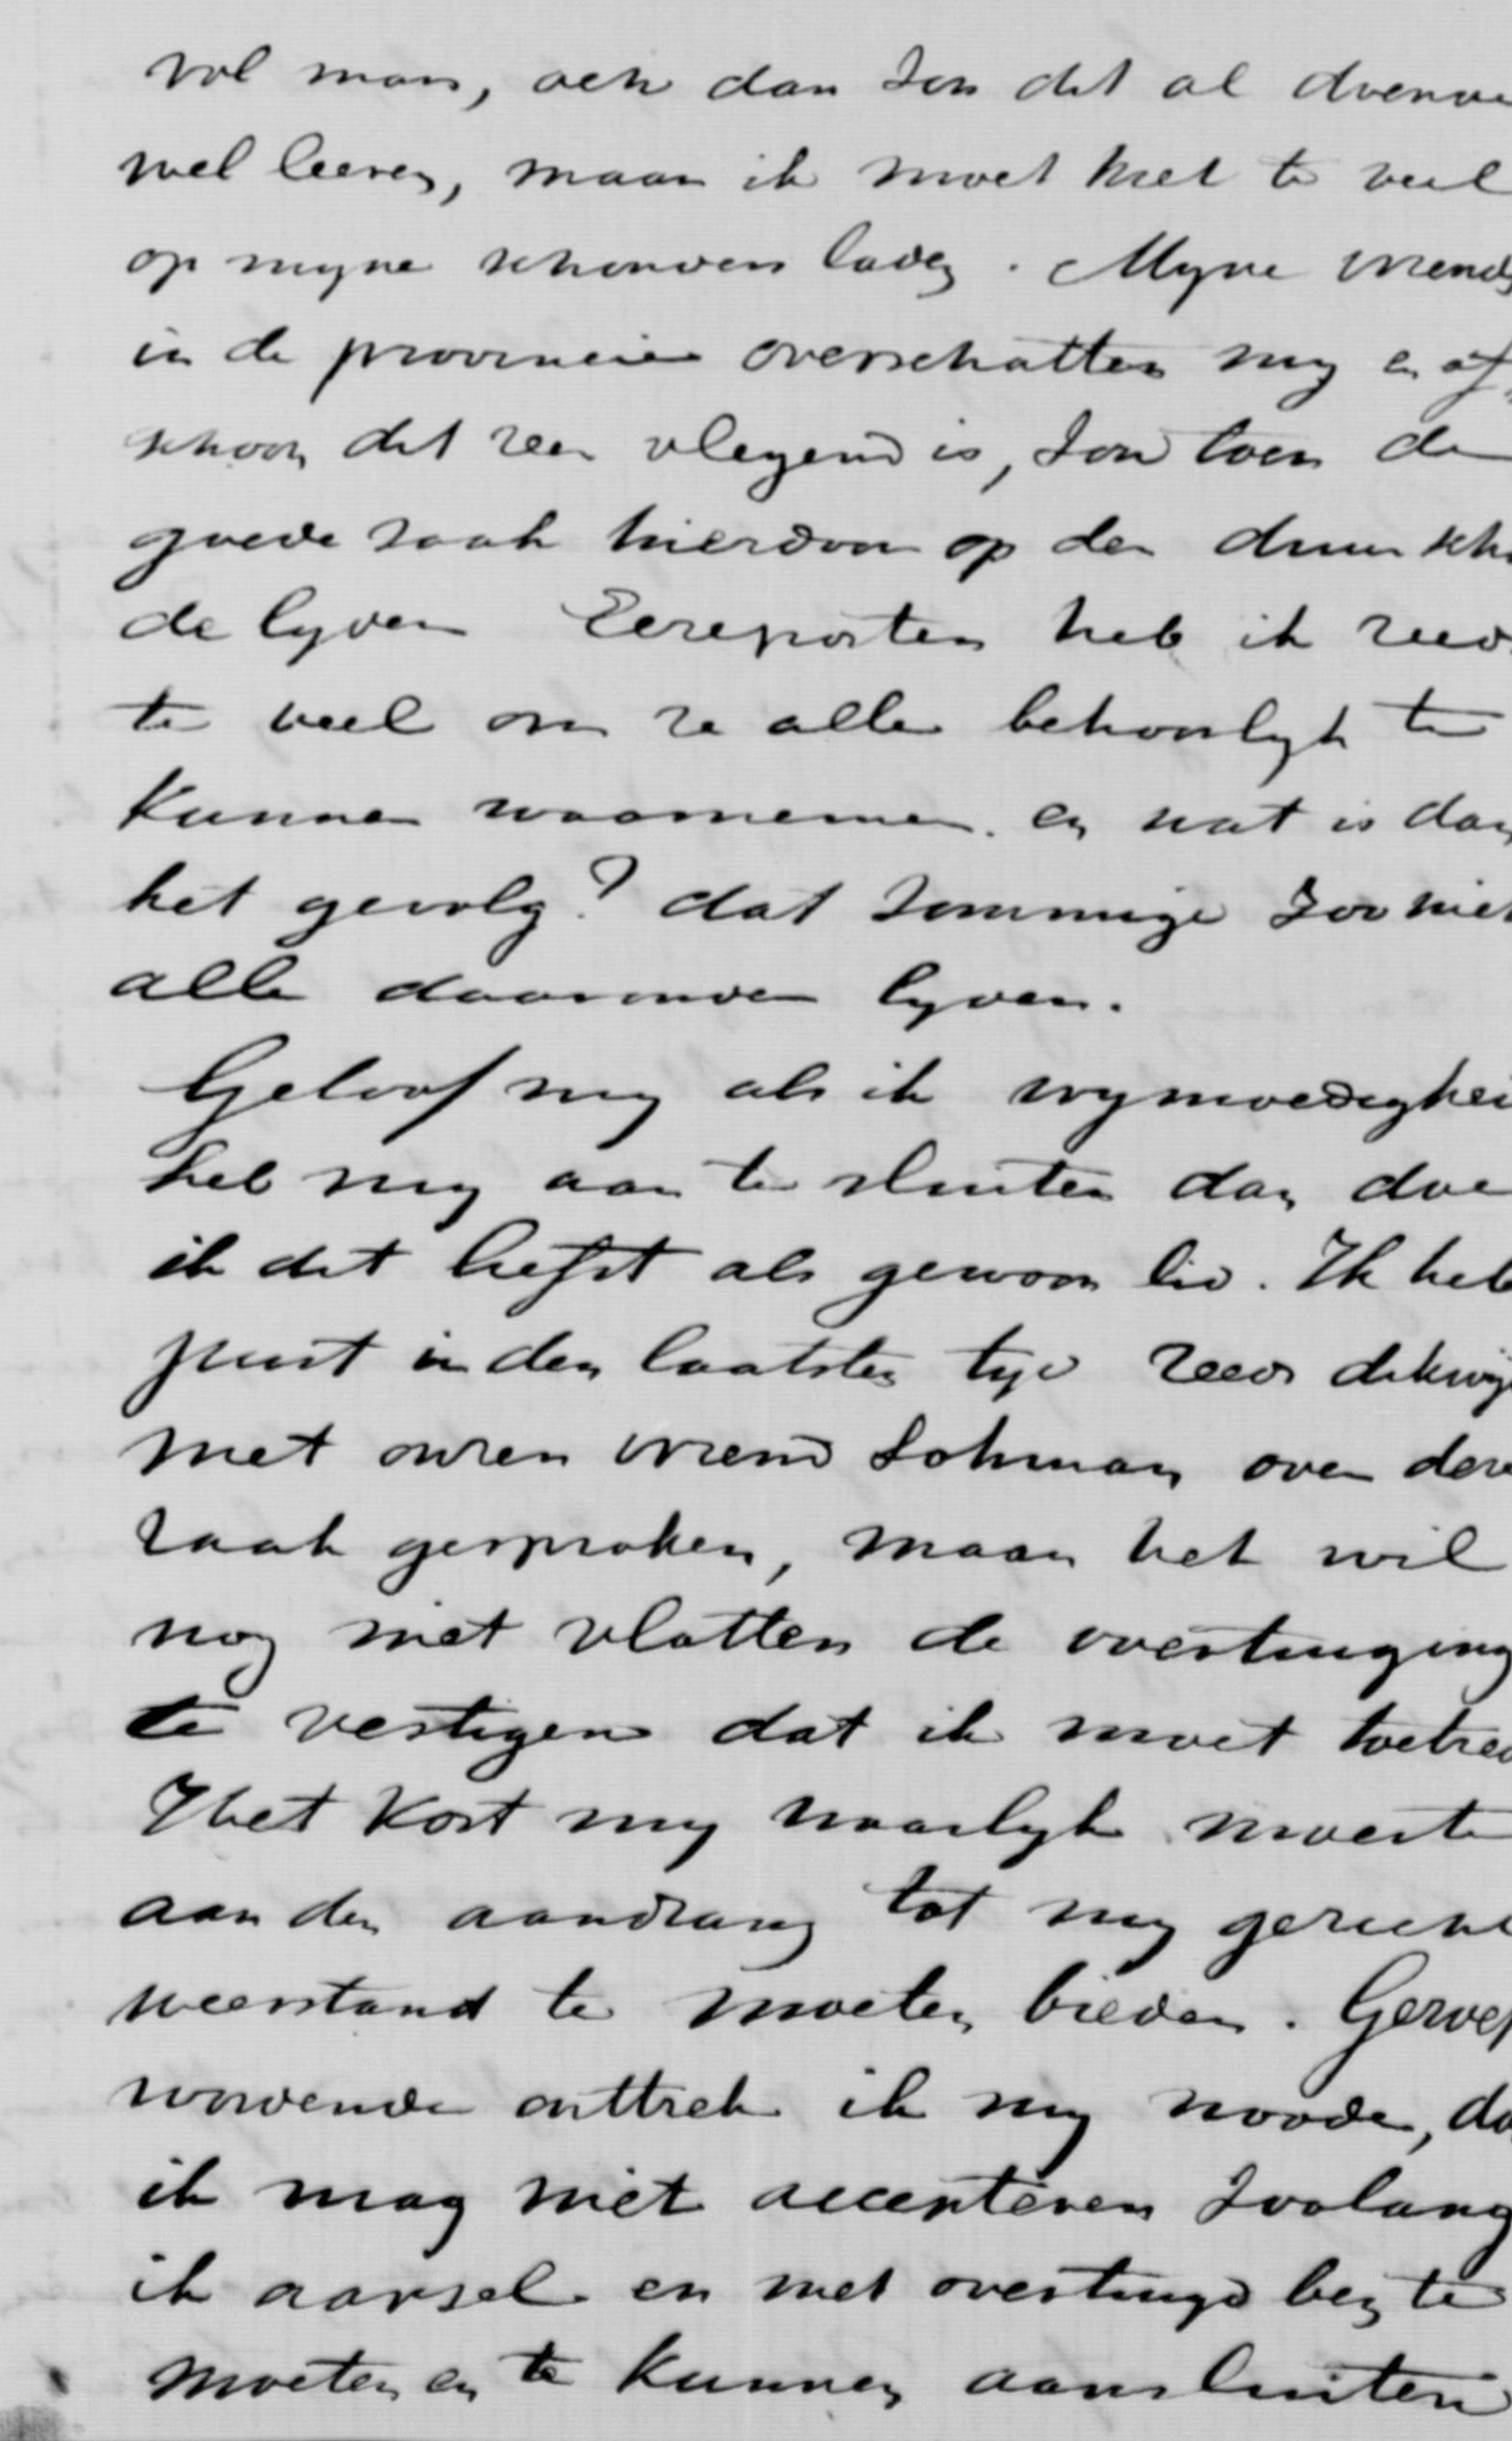 vol man, och dan zou dit al doende
wel leeren, maar ik moet niet te veel
op myne schouders laden. Myne vriend
in de provincie overschatten my en of
schoon dit zeer vleyend is, zou toen de
goede zaak hierdoor op den duur scha
de lyden Eereposten heb ik reed
te veel om ze alle behoorlyk te
kunnen waarnemen. en wat is dan
het gevolg? dat sommige zoo niet
alle daaronder lyden.
Geloof my als ik vrymoedighei
heb my aan te sluiten dan doe
ik dit liefst als gewoon lid. Ik heb
juist in den laatsten tyd reeds dikwy
met onzen vriend Lohman over deze
zaak gesproken, maar het wil
nog niet vlotten de overtuiging
te vestigen dat ik moet toetred
Het kost my waarlyk moeite
aan den aandrang tot my gerich
weerstand te moeten bieden. Geroep
wordende onttrek ik my noode, do
ik mag niet accepteren zoolang
ik aarsel en niet overtuigd ben te
moeten en te kunnen aansluiten